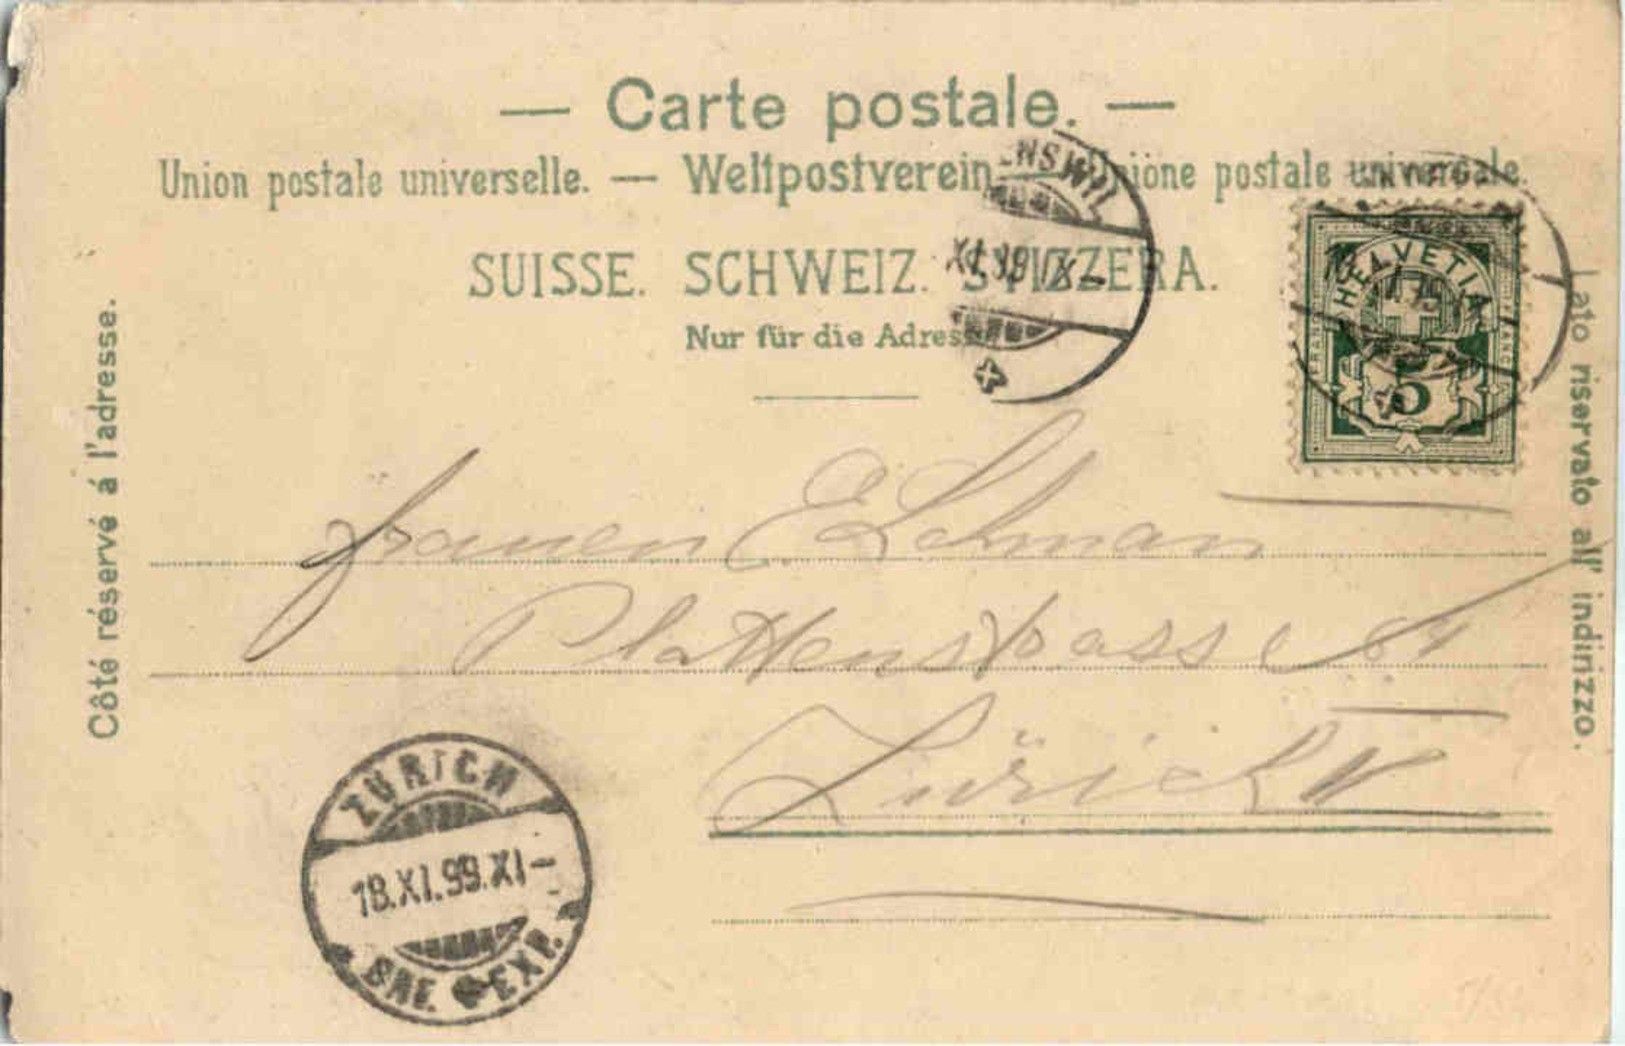 — Carte postale. —
Union postale universelle. — Weltpostverein universale.
SUISSE. SCHWEIZ. SVIZZERA.
Nur für die Adresse
Côté réservé á l'adresse.
Lato riservato all' indirizzo.
NSWIL
XI.99.IX-
HELVETIA
FRANCO
5
E Lehman
Plattenstrasse
Zürich
ZÜRICH
18.XI.99.XI-
BRF. EXP.